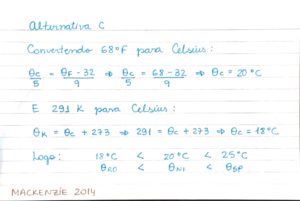 Alternativa C
Convertendo 68°F para Celsius:
θc/5 = θF-32/9 ⇒ θc/5 = 68-32/9 ⇒ θc = 20°C
E 291 K para Celsius:
θK = θc + 273 ⇒ 291 = θc + 273 ⇒ θc = 18°C
Logo: 18°C < 20°C < 25°C
θRO < θNI < θSP
MACKENZIE 2014